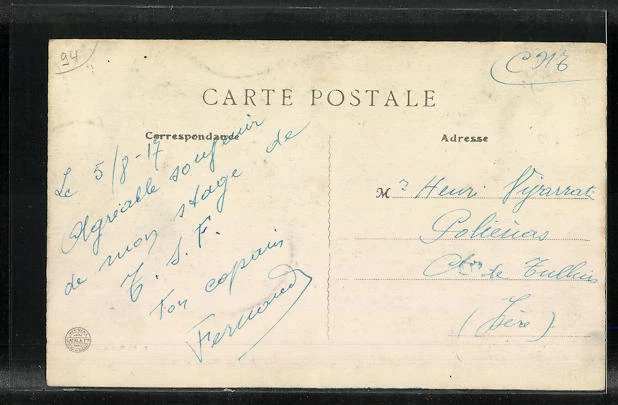 94
CARTE POSTALE
Correspondance
Adresse
Le 5/8-17
Agréable souvenir
de mon stage de
T. S. F.
Ton copain
Fernand
Mr Henri
Polienas
Cton de Tullins
(Isère)